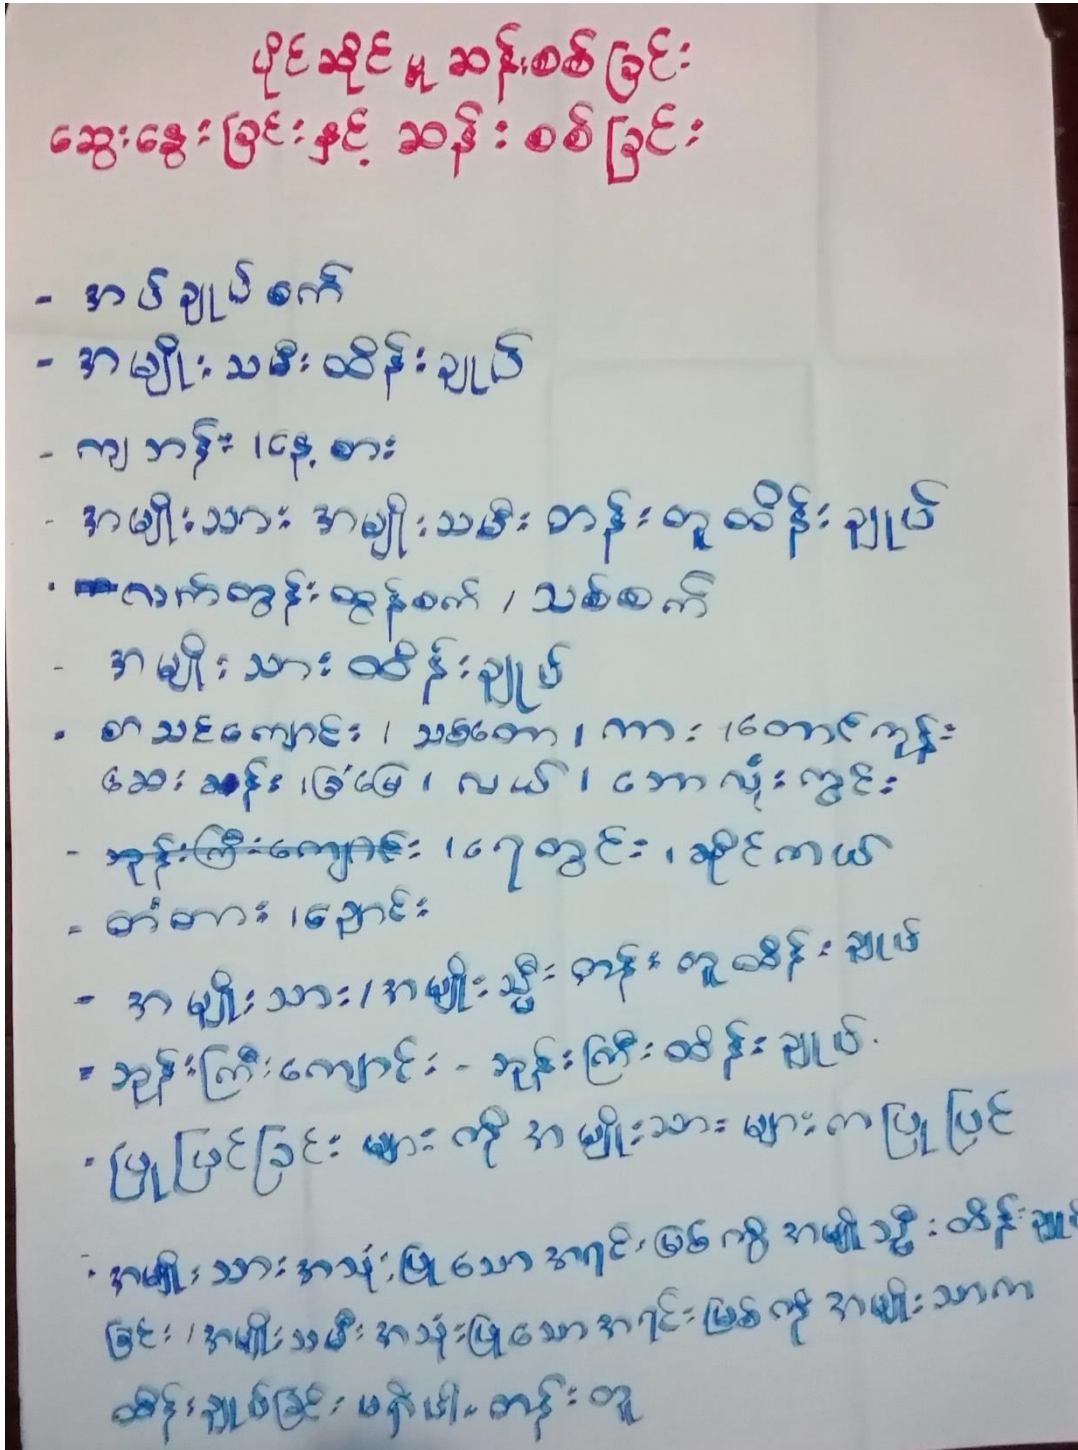 ပိုင်ဆိုင်မှု ဆန်းစစ်ခြင်း
ဆွေးနွေးခြင်းနှင့် ဆန်းစစ်ခြင်း
- အပ်ချုပ်စက်
- အမျိုးသမီးထိန်းချုပ်
- ကျဘန်း၊နေ့စား
- အမျိုးသား အမျိုးသမီး တန်းတူထိန်းချုပ်
- လက်တွန်းထွန်စက် / သစ်စက်
- အမျိုးသား ထိန်းချုပ်
- စာသင်ကျောင်း ၊ သစ်တော ၊ ကား ၊တောင်ကုန်း
ဆေးခန်း ၊ခြံမြေ ၊ လယ် ၊ ဘောလုံးကွင်း
- ဘုန်းကြီးကျောင်း ၊ရေတွင်း ၊ ဆိုင်ကယ်
- တံတား ၊ချောင်း
- အမျိုးသား/အမျိုးသ္မီး တန်းတူထိန်းချုပ်
- ဘုန်းကြီးကျောင်း - ဘုန်းကြီးထိန်းချုပ်.
- ပြုပြင်ခြင်း များ ကို အမျိုးသား များ က ပြုပြင်
- အမျိုးသားအသုံးပြုသောအရင်းမြစ်ကို အမျိုးသ္မီးထိန်းချုပ်
ခြင်း /အမျိုးသမီးအသုံးပြုသောအရင်းမြစ်ကို အမျိုးသားက
ထိန်းချုပ်ခြင်း မရှိပါ။ တန်းတူ